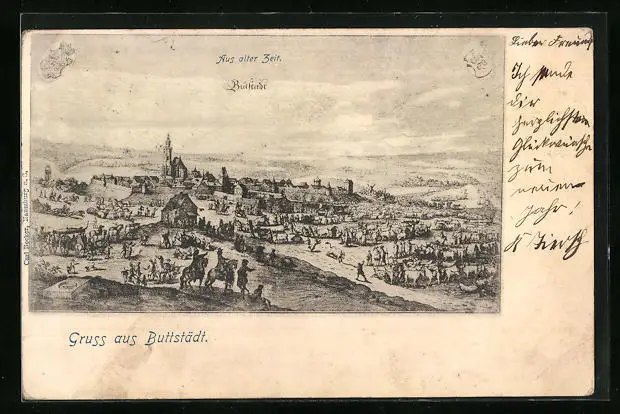 Aus alter Zeit.
Buttstadt
Carl Becker, Naumburg a. S.
Lieber Freund
Ich sende
dir
herzlichsten
Glückwünsche
zum
neuen
Jahr!
Gruss aus Buttstädt.